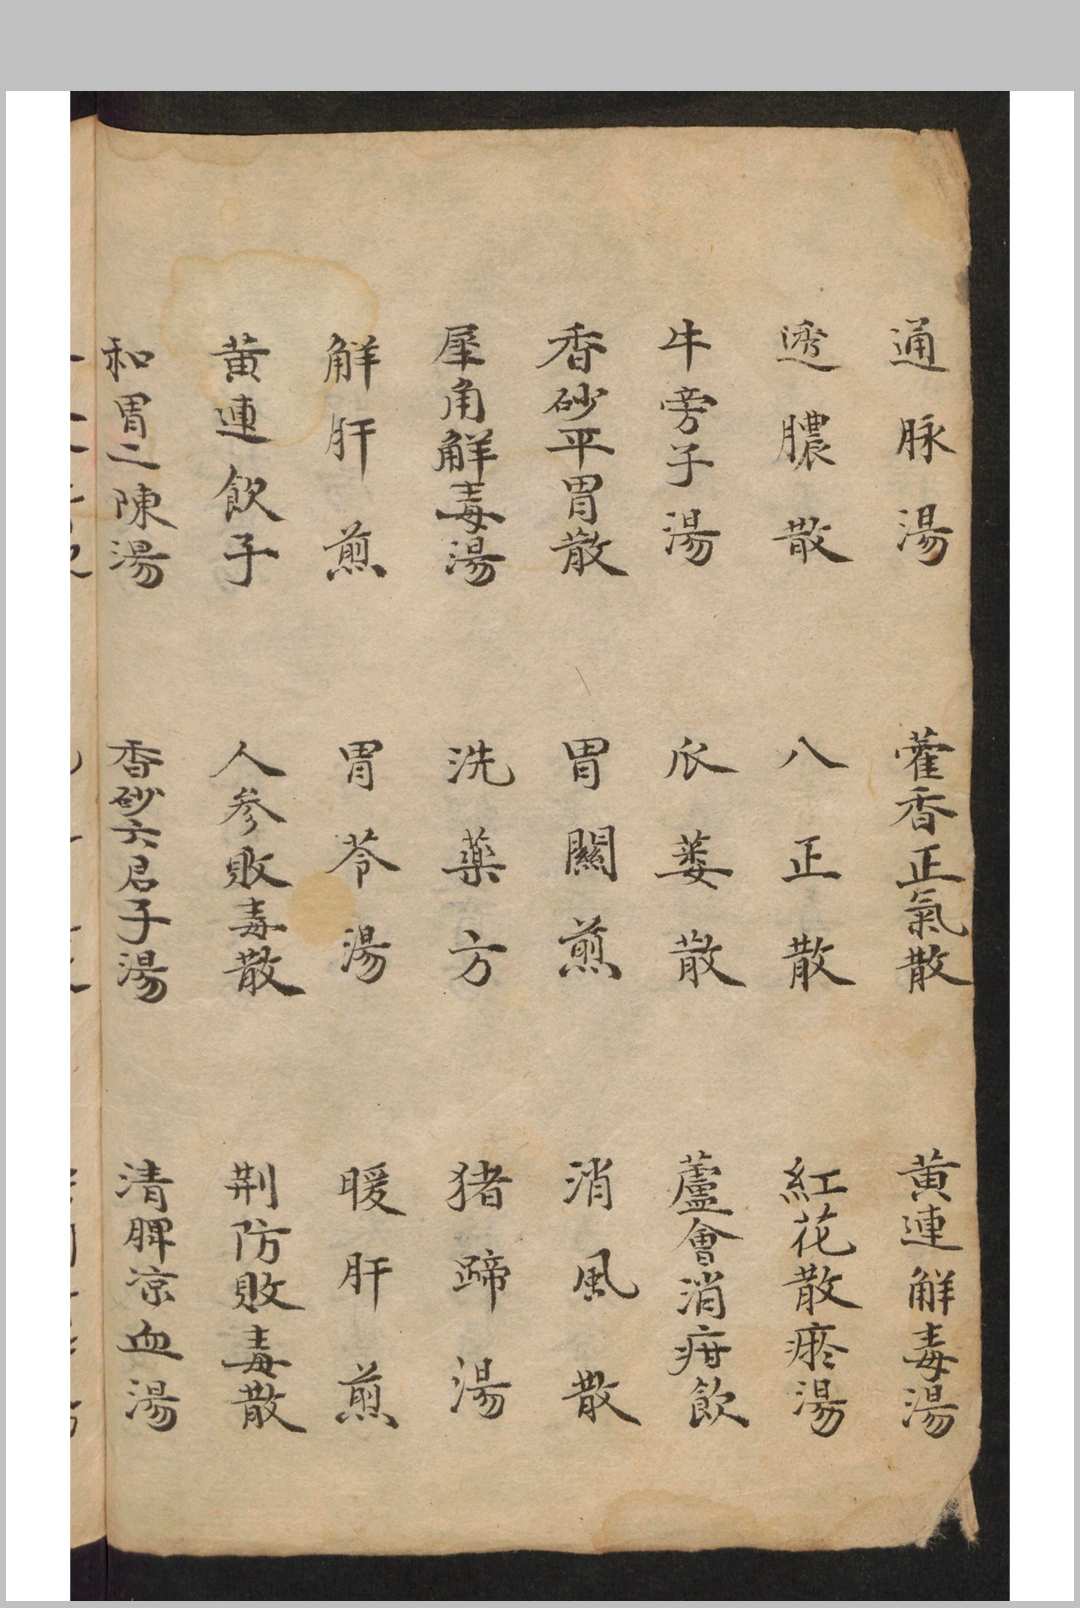 通脉湯　藿香正氣散　黃連解毒湯
透膿散　八正散　紅花散瘀湯
牛旁子湯　瓜蔞散　蘆會消疳飲
香砂平胃散　胃關煎　消風散
犀角解毒湯　洗藥方　猪蹄湯
解肝煎　胃苓湯　暖肝煎
黃連飲子　人參敗毒散　荆防敗毒散
和胃二陳湯　香砂六君子湯　清脾凉血湯